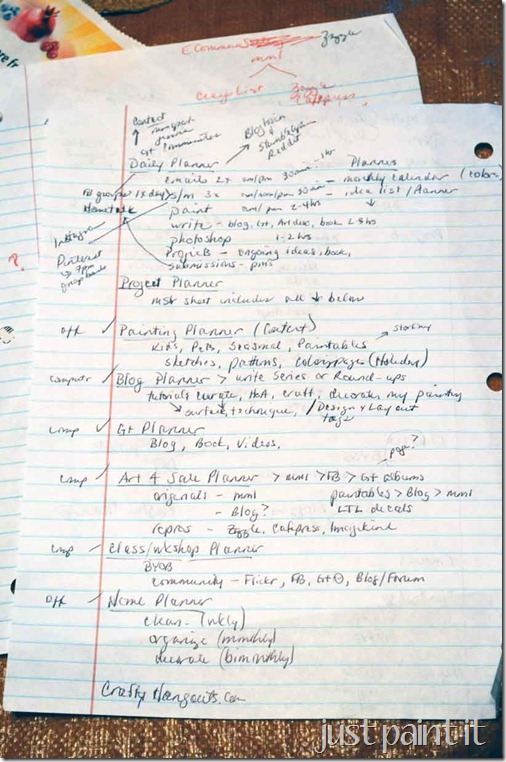 re fr
ECommerce Zazzle
mml
Craigslist Zazzle
Contact
BlogHer
StumbleUpon
Reddit
Communities
Daily Planner Planner
emails 2x am/pm 30 min - 1hr - monthly calendar (color)
FB groups (1x day) s/m 3x 30min - idea list / Planner
Hometalk paint am/pm 2-4hrs
write - blog, G+, book 2-8hrs
Instagram photoshop 1-2 hrs
Pinterest Project B - ongoing ideas, book,
7pm submissions - pms
group boards
?
Project Planner
mstr sheet includes all ↓ below
off ✓ Painting Planner (Content)
Kids, Pets, Seasonal, Paintables
sketches, patterns, coloring pages (Holidays)
computer ✓ Blog Planner > write Series or Round-ups
tutorials curate, HOA, craft, decorate, my painting
surface, technique, / Design & Layout
tags
comp ✓ G+ Planner
Blog, Book, Videos,
page?
comp ✓ Art 4 Sale Planner > mml > FB > G+ albums
originals - mml paintables > Blog > mml
- Blog? LTL decals
repros - Zazzle, Cafepress, Imagekind
comp ✓ Class/wkshop Planner
BYOB
community - Flickr, FB, G+, Blog/Forum
off ✓ Home Planner
clean - (wkly)
organize (monthly)
decorate (bimonthly)
CraftyHangouts.com
just paint it